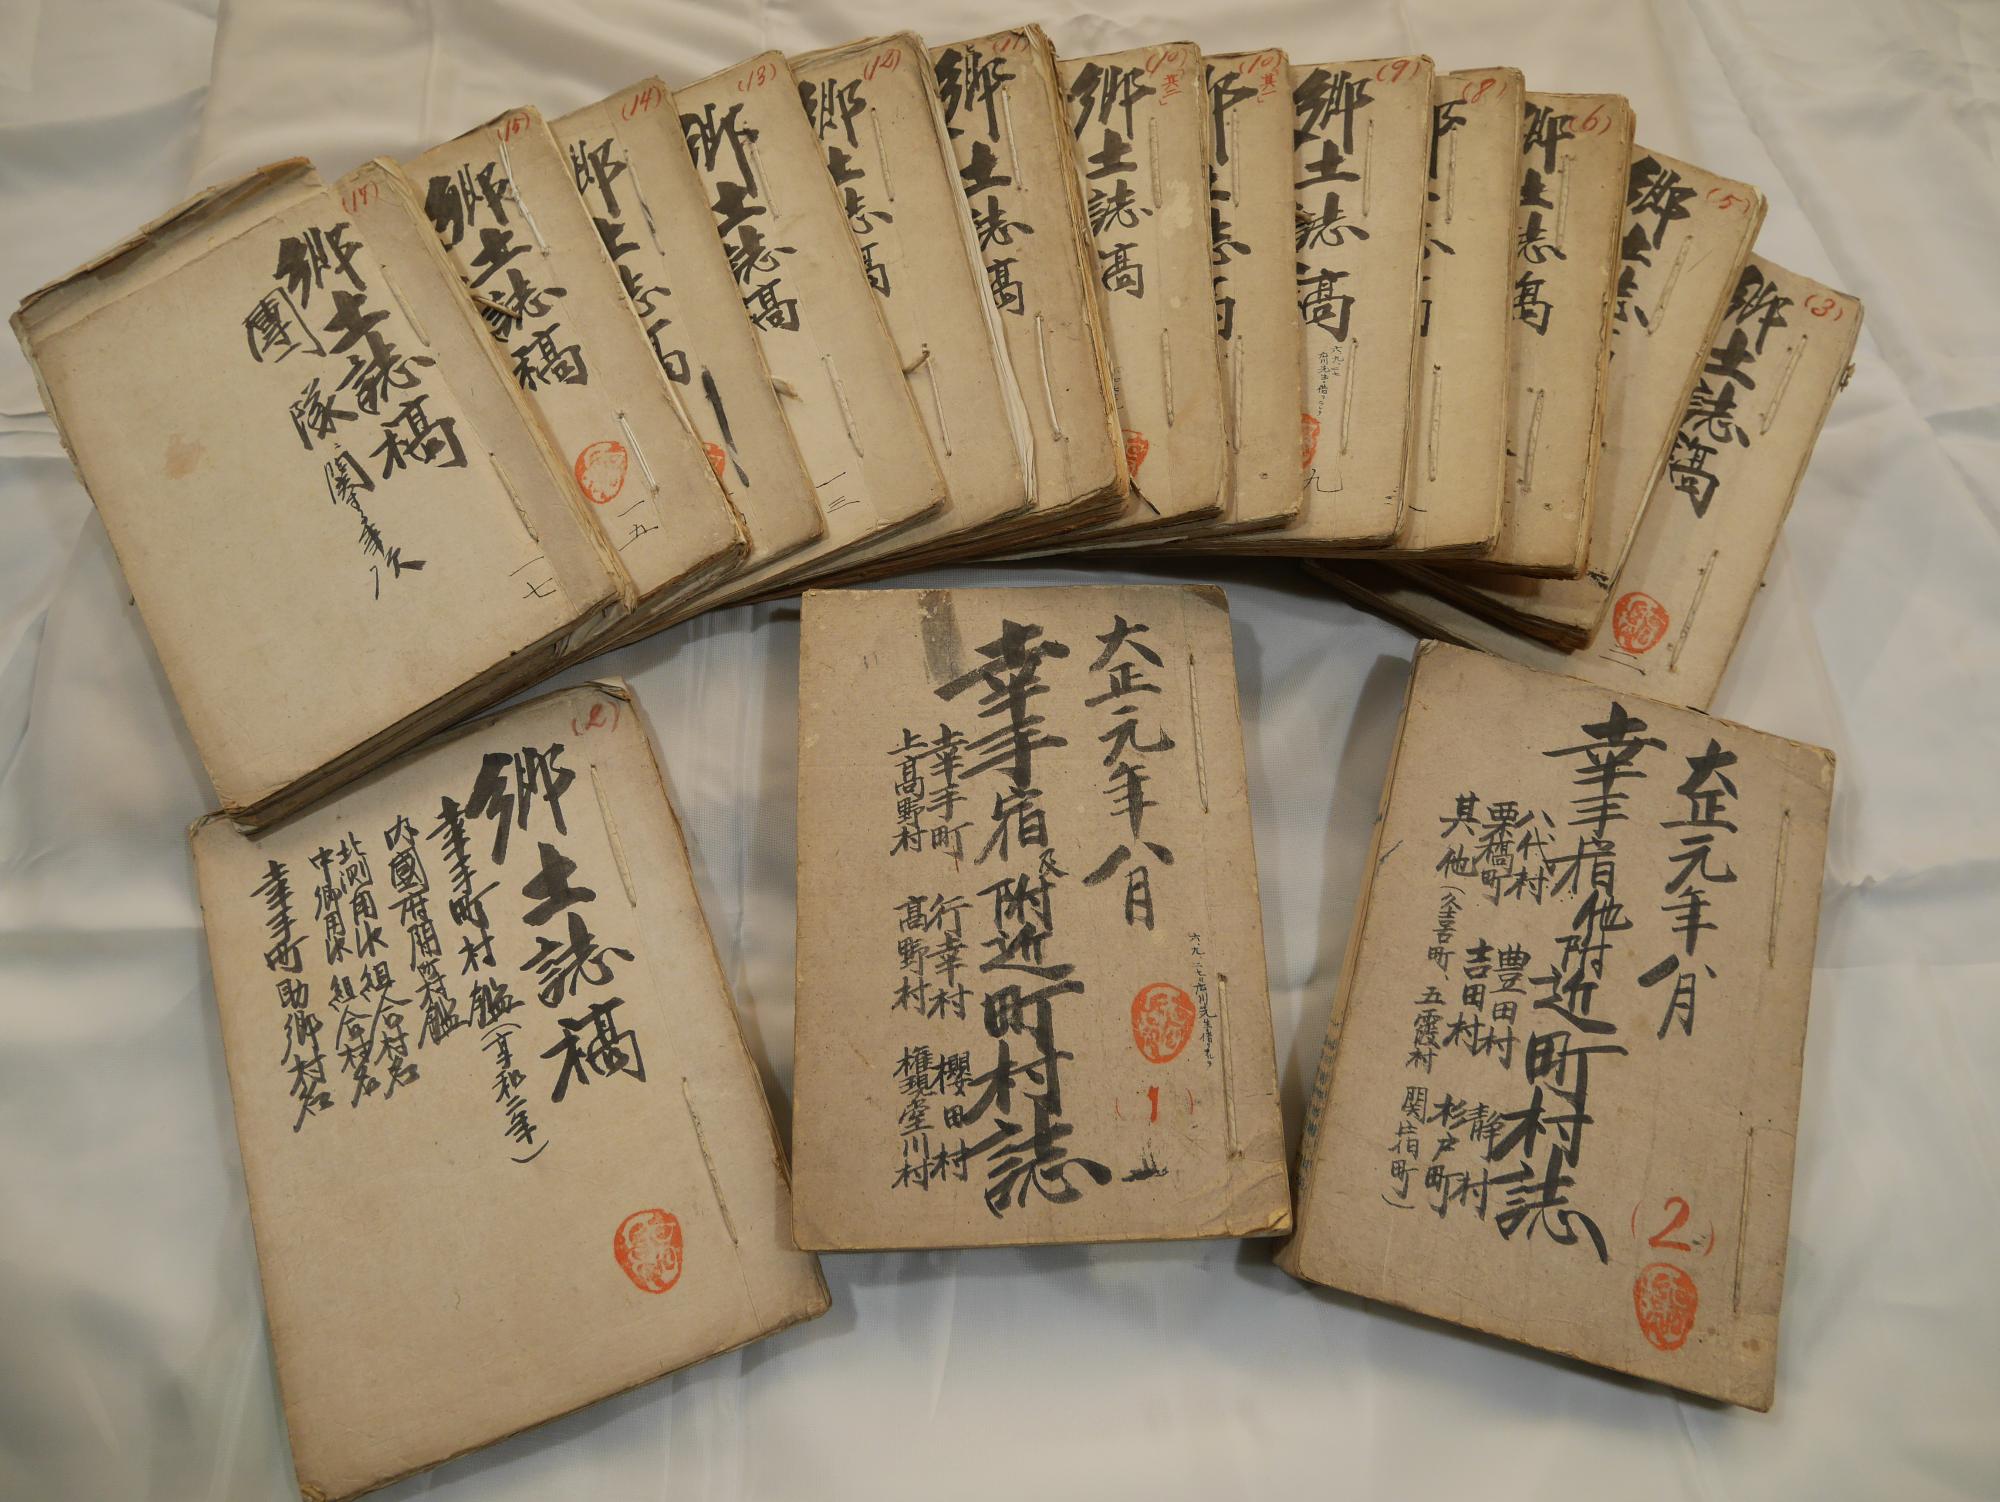 (17)
郷土誌稿
團隊
一七
(15)
郷土誌稿
一五
(14)
郷土誌稿
(13)
郷土誌稿
一三
(12)
郷土誌稿
(11)
郷土誌稿
(10)
其二
郷土誌稿
(10)
其一
土誌稿
(9)
郷土誌稿
九
(8)
(6)
郷土誌稿
(5)
郷土誌
(3)
郷土誌稿
(2)
郷土誌稿
幸手町村鑑(享和二年)
内國府間村鑑
北側用水組合村名
中郷用水組合村名
幸手町助郷村名
大正元年八月
幸手宿及附近町村誌
幸手町 行幸村 櫻田村
上高野村 高野村 権現堂川村
(1)
大正元年八月
幸手宿他附近町村誌
八代村 豊田村 静村
栗橋町 吉田村 杉戸町
其他(久喜町、五霞村 関宿町)
(2)